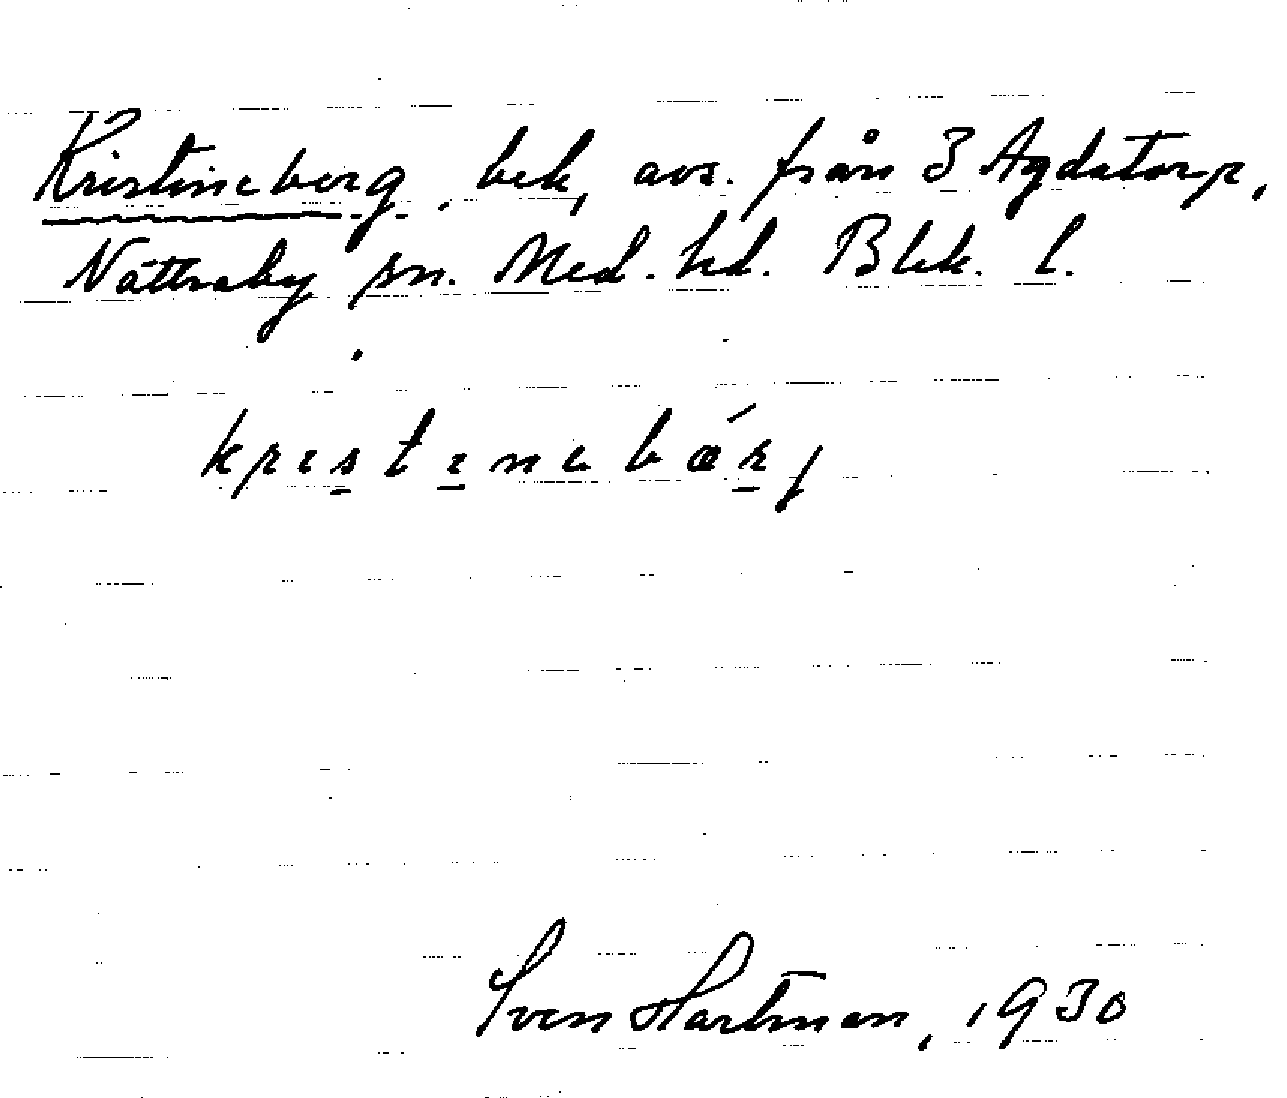 Kristineberg, bek, avs. från 3 Agdatorp,
Nättraby sn. Med. hd. Blek. l.
krɪstɪnəbærj
Sven Hartman, 1930